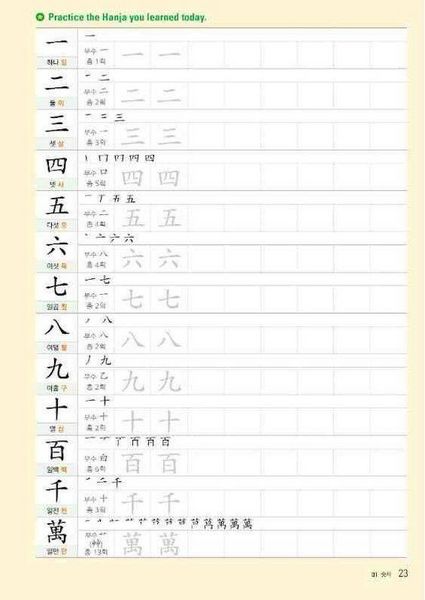 Practice the Hanja you learned today.
一
一
하나 일
부수 一
총 1획
一 一
二
一 二
둘 이
부수 二
총 2획
二 二
三
一 二 三
셋 삼
부수 一
총 3획
三 三
四
丨 冂 四 四 四
넷 사
부수 口
총 5획
四 四
五
一 丅 五 五
다섯 오
부수 二
총 4획
五 五
六
丶 亠 六 六
여섯 육
부수 八
총 4획
六 六
七
一 七
일곱 칠
부수 一
총 2획
七 七
八
丿 八
여덟 팔
부수 八
총 2획
八 八
九
丿 九
아홉 구
부수 乙
총 2획
九 九
十
一 十
열 십
부수 十
총 2획
十 十
百
一 丆 丆 百 百 百
일백 백
부수 白
총 6획
百 百
千
一 二 千
일천 천
부수 十
총 3획
千 千
萬
萬 萬 萬
일만 만
부수
총 13획
萬 萬
01 숫자 23